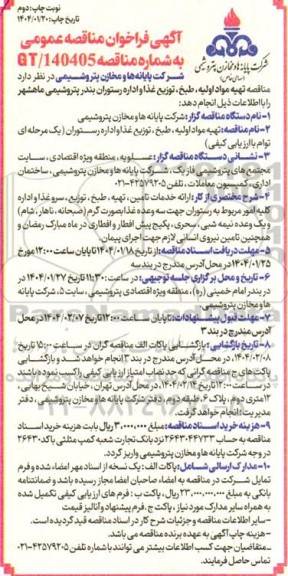 نوبت چاپ: دوم
تاریخ چاپ: ۱۴۰۴/۰۱/۲۰
شرکت پایانه‌ها و مخازن پتروشیمی
(سهامی خاص)
آگهی فراخوان مناقصه عمومی
به شماره مناقصه GT/140405
شرکت پایانه‌ها و مخازن پتروشیمی در نظر دارد
مناقصه تهیه مواد اولیه، طبخ، توزیع غذا و اداره رستوران بندر پتروشیمی ماهشهر
را با اطلاعات ذیل انجام دهد:
۱- نام دستگاه مناقصه گزار: شرکت پایانه ها و مخازن پتروشیمی
۲- نام مناقصه: تهیه مواد اولیه، طبخ، توزیع غذا و اداره رستوران (یک مرحله ای
توام با ارزیابی کیفی)
۳- نشانی دستگاه مناقصه گزار: عسلویه، منطقه ویژه اقتصادی، سایت
مجتمع های پتروشیمی فاز یک، شرکت پایانه ها و مخازن پتروشیمی، ساختمان
اداری، کمیسیون معاملات، تلفن ۴۲۵۷۹۲۰۵-۰۲۱
۴- شرح مختصری از کار: ارائه خدمات تامین، تهیه، طبخ، توزیع، سرو غذا و اداره
کلیه امور مربوط به رستوران جهت سه وعده غذا بصورت گرم (صبحانه، ناهار، شام)
و یک وعده نیمه شبی، سحری، پکیج پیش افطار و افطاری در ماه مبارک رمضان و
همچنین تامین نیروی انسانی لازم جهت اجرای پیمان.
۵- مهلت دریافت اسناد مناقصه: از تاریخ ۱۴۰۴/۰۱/۱۸ تا پایان ساعت ۱۲:۰۰ مورخ
۱۴۰۴/۰۱/۲۵ در محل آدرس مندرج در بند سه
۶- تاریخ و محل برگزاری جلسه توجیهی: در ساعت ۱۱:۳۰ تاریخ ۱۴۰۴/۰۱/۲۷
در بندر امام خمینی (ره)، منطقه ویژه اقتصادی پتروشیمی، سایت ۵، شرکت پایانه
ها و مخازن پتروشیمی.
۷- مهلت قبول پیشنهادات: تا پایان ساعت ۱۲:۰۰ تاریخ ۱۴۰۴/۰۲/۰۷ در محل
آدرس مندرج در بند ۳
۸- تاریخ بازگشایی: بازگشایی پاکات الف مناقصه گران در ساعت ۱۵:۰۰ تاریخ
۱۴۰۴/۰۲/۰۸، در محل آدرس مندرج در بند ۳ انجام خواهد شد و بازگشایی
پاکات های ج مناقصه گرانی که حد نصاب امتیاز ارزیابی کیفی را کسب نموده باشند
در ساعت ۱۲:۰۰ تاریخ ۱۴۰۴/۰۲/۱۴ در محل آدرس تهران، خیابان شیخ بهایی،
۱۲ متری دوم، پلاک ۶، طبقه دوم، دفتر شرکت پایانه ها و مخازن پتروشیمی، دفتر
مدیریت؛ انجام خواهد گرفت.
۹- هزینه خرید اسناد مناقصه: مبلغ ۳,۰۰۰,۰۰۰ ریال بابت هزینه خرید اسناد
مناقصه به حساب ۲۶۴۳۰۴۴۷۳۳ نزد بانک تجارت شعبه کمپ مثلثی باکد ۲۶۴۳۰
در وجه شرکت پایانه ها و مخازن پتروشیمی واریز گردد.
۱۰- مدارک ارسالی شامل: پاکات الف: یک نسخه از اسناد مهر امضاء شده و فرم
تمایل شرکت در مناقصه به امضاء صاحبان امضا مجاز رسیده باشد و ضمانتنامه
بانکی به مبلغ ۲۳,۰۰۰,۰۰۰,۰۰۰ ریال، پاکت ب: فرم های ارزیابی کیفی تکمیل شده
به همراه سایر مدارک مورد نیاز، پاکت ج: فرم پیشنهاد و آنالیز قیمت
- سایر اطلاعات مناقصه و جزئیات شرح کار در اسناد مناقصه قید گردیده است.
- هزینه چاپ آگهی به عهده برنده مناقصه می باشد.
- متقاضیان جهت کسب اطلاعات بیشتر می توانند با شماره تلفن ۴۲۵۷۹۲۰۵-۰۲۱
تماس حاصل فرمایند.